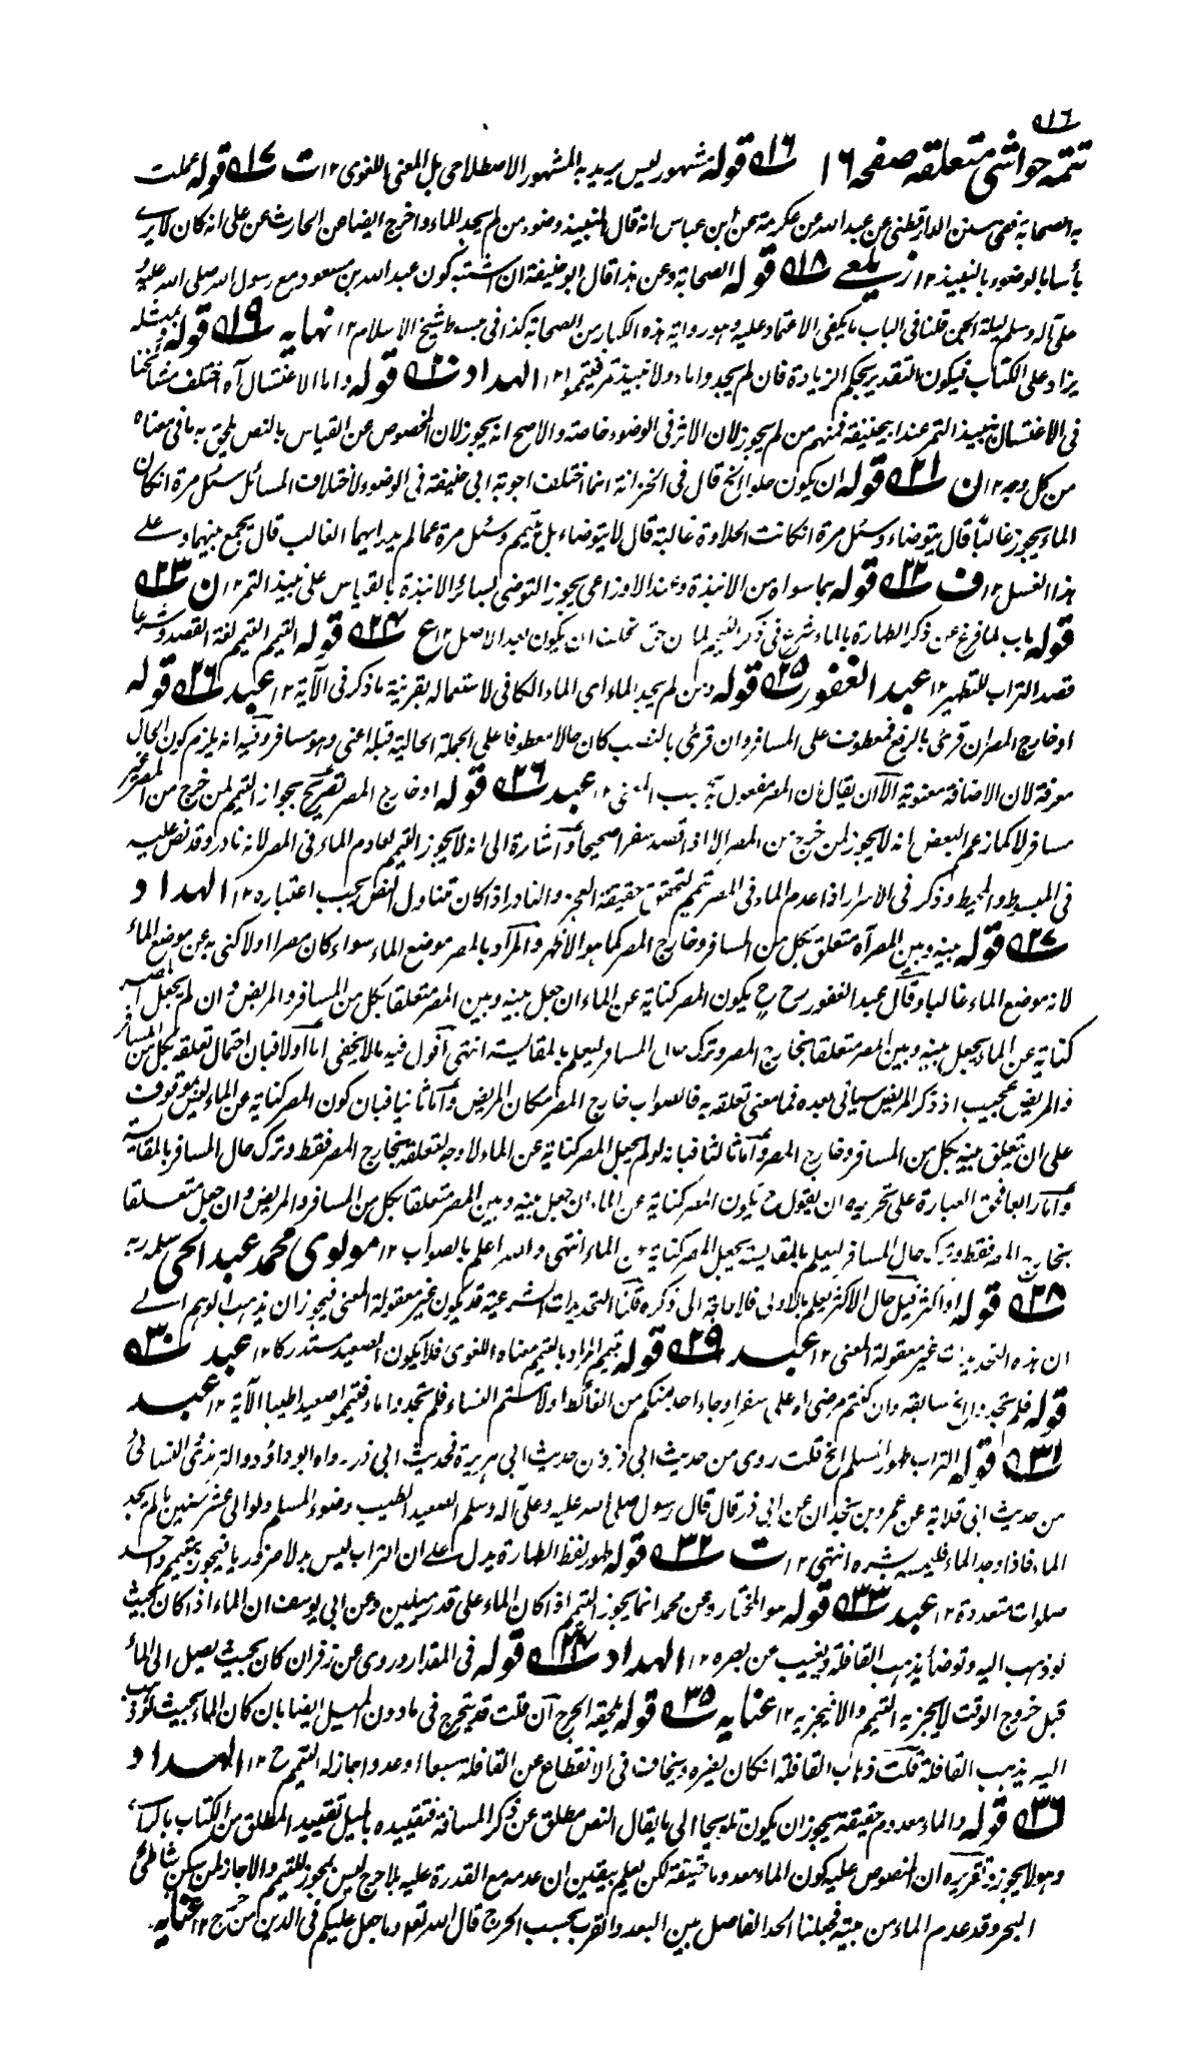 تتمہ حواشی متعلقہ صفحہ ١٦ ۱۶ قولہ مشہور ليس يريد به المشہور الاصطلاحی بل المعنى اللغوى ١٢ ت ۱۷ قولہ عملت
به الصحابة ففى سنن الدارقطنى عن عبد الله عن عكرمة عن ابن عباس انه قال النبيذ وضوء من لم يجد الماء واخرج ايضا عن الحارث عن على انه كان لا يرى
بأسا بالوضوء بالنبيذ ١٢ زيلعے ۱۸ قولہ الصحابة وعن هذا قال ابو حنيفة ان اشتبه كون عبد الله بن مسعود مع رسول الله صلى الله عليه و
على آله وسلم ليلة الجن قلنا فى الباب ما يكفى الاعتماد عليه وهو رواية هذه الكبار من الصحابة كذا فى مبسوط شيخ الاسلام ١٢ نہايہ ۱۹ قولہ وبمثله
يزاد على الكتاب فيكون التقدير بحكم الزيادة فان لم يجدوا ماء ولا نبيذ تمر فتيمموا ١٢ الهداد ۲۰ قولہ واما الاغتسال آه اختلف مشائخنا
فى الاغتسال بنبيذ التمر عند ابيحنيفة فمنهم من لم يجوز لان الاثر فى الوضوء خاصة والاصح انه يجوز لان المخصوص عن القياس بالنص يلحق به ما فى معناه
من كل وجه ١٢ ن ۲۱ قولہ ان يكون حلوا الخ قال فى الخزانة انما اختلف اجوبة ابى حنيفة فى الوضوء لاختلاف المسائل سئل مرة انكان
الماء يجوز غالبا قال يتوضاء وسئل مرة انكانت الحلاوة غالبة قال لا يتوضاء بل يتيمم وسئل مرة عما لم يدر ايهما الغالب قال يجمع بينهما وعلے
هذا الغسل ١٢ ف ۲۲ قولہ بما سواه من الانبذة وعند الاوزاعى يجوز التوضى بسائر الانبذة بالقياس على نبيذ التمر ١٢ ن ۲۳
قولہ باب لما فرغ عن ذكر الطهارة بالماء شرع فى ذكر التيمم لما ان حق الخلف ان يكون بعد الاصل ١٢ ع ۲۴ قولہ التيمم التيمم لغة القصد وشرعا
قصد التراب للتطهير ١٢ عبد الغفور ۲۵ قولہ ومن لم يجد الماء اى الماء الكافى لاستعماله بقرينة ما ذكر فى الآية ١٢ عبد ۲۶ قولہ
او خارج المصر ان قرئ بالرفع فمعطوف على المسافر وان قرئ بالنصب كان حالا معطوفا على الجملة الحالية قبله اعنى وهو مسافر وفيه انه يلزم كون الحال
معرفة لان الاضافة معنوية الا ان يقال ان المصر مفعول به بحسب المعنى ١٢ عبد ۲۶ قولہ او خارج المصر تصريح بجواز التيمم لمن خرج من المصر غير
مسافر لا كما زعم البعض انه لا يجوز لمن خرج من المصر الا اذا قصد سفرا صحيحا واشارة الى انه لا يجوز التيمم لعادم الماء فى المصر لانه نادر وقد نص عليه
فى المبسوط والمحيط وذكر فى الاسرار اذا عدم الماء فى المصر تيمم لتحقق حقيقة العجز والنادر اذا كان تناول النص يجب اعتباره ١٢ الهداد
۲۷ قولہ بينه وبين المصر آه متعلق بكل من المسافر وخارج المصر كما هو الاظهر والمراد بالمصر موضع الماء سواء كان مصرا او لا كنى به عن موضع الماء
لانه موضع الماء غالبا وقال عبد الغفور رح ح يكون المصر كناية عن الماء ان جعل بينه وبين المصر متعلقا بكل من المسافر والمريض وان لم يجعل المصر
كناية عن الماء يجعل بينه وبين المصر متعلقا بخارج المصر وترك حال المسافر ليعلم بالمقايسة انتهى اقول فيه ما لا يخفى اما اولا فبان احتمال تعلقه بكل من المسافر
والمريض عجيب اذ ذكر المريض سياتى بعده فما معنى تعلقه به فالصواب خارج المصر مكان المريض واما ثانيا فبان كون المصر كناية عن الماء ليس بموقوف
على ان يتعلق بينه بكل من المسافر وخارج المصر واما ثالثا فبانه لو لم يجعل المصر كناية عن الماء لا وجه لتعلقه بخارج المصر فقط وترك حال المسافر بالمقايسة
واما رابعا فحق العبارة على تحريره ان يقول ح يكون المصر كناية عن الماء ان جعل بينه وبين المصر متعلقا بكل من المسافر والمريض وان جعل متعلقا
بخارج المصر فقط وترك حال المسافر ليعلم بالمقايسة يجعل المصر كناية عن الماء انتهى والله اعلم بالصواب ١٢ مولوی محمد عبد الحی سلمه ربه
۲۸ قولہ او اكثر قيل حال الاكثر يعلم بالاولى فلا حاجة الى ذكره قلنا التحديدات الشرعية قد يكون غير معقولة المعنى فيجوز ان يذهب الوهم الے
ان هذه التحديدات غير معقولة المعنى ١٢ عبد ۲۹ قولہ تيمم المراد بالتيمم معناه اللغوى فلا يكون الصعيد مستدركا ١٢ عبد ۳۰
قولہ فلم تجدوا الخ سابقه وان كنتم مرضى او على سفر او جاء احد منكم من الغائط او لامستم النساء فلم تجدوا ماء فتيمموا صعيدا طيبا الآية ١٢ عبد
۳۱ قولہ التراب طهور المسلم الخ قلت روى من حديث ابى ذر ومن حديث ابى هريرة فحديث ابى ذر رواه ابو داؤد والترمذى والنسائى
من حديث ابى قلابة عن عمرو بن بجدان عن ابى ذر قال قال رسول صلى الله عليه وعلى آله وسلم الصعيد الطيب وضوء المسلم ولو الى عشر سنين ما لم يجد
الماء فاذا وجد الماء فليمسه بشره انتهى ١٢ ت ۳۲ قولہ طهور لفظ الطهارة يدل على ان التراب ليس بدلا ضروريا فيجوز بتيمم واحد
صلوات متعددة ١٢ عبد ۳۳ قولہ هو المختار وعن محمد انما يجوز التيمم اذا كان الماء على قدر ميلين وعن ابى يوسف ان الماء اذا كان بحيث
لو ذهب اليه وتوضأ يذهب القافلة ويغيب عن بصره ١٢ الهداد ۳۴ قولہ فى المقدار وروى عن زفر ان كان بحيث يصل الى الماء
قبل خروج الوقت لا يجزيه التيمم والا فيجزيه ١٢ عنايه ۳۵ قولہ يلحقه الحرج آن قلت قد يتحرج فى ما دون الميل ايضا بان كان الماء بحيث لو ذهب
اليه يذهب القافلة قلت ذهاب القافلة انكان يضره ويخاف فى الانقطاع عن القافلة سبعا او عدوا جاز له التيمم ح ١٢ الهداد
۳۶ قولہ والماء معدوم حقيقة يجوز ان يكون تلويحا الى ما يقال النص مطلق عن ذكر المسافة فتقييده بالميل تقييد المطلق من الكتاب بالرأى
وهو لا يجوز وتقريره ان المنصوص عليه كون الماء معدوما حقيقة لكن يعلم بيقين ان عدمه مع القدرة عليه بلا حرج ليس بمجوز للتيمم والا جاز لمن سكن شاطئ
البحر وقد عدم الماء من بيته فجعلنا الحد الفاصل بين البعد والقرب بحسب الحرج قال الله تعالى وما جعل عليكم فى الدين من حرج ١٢ عنايه